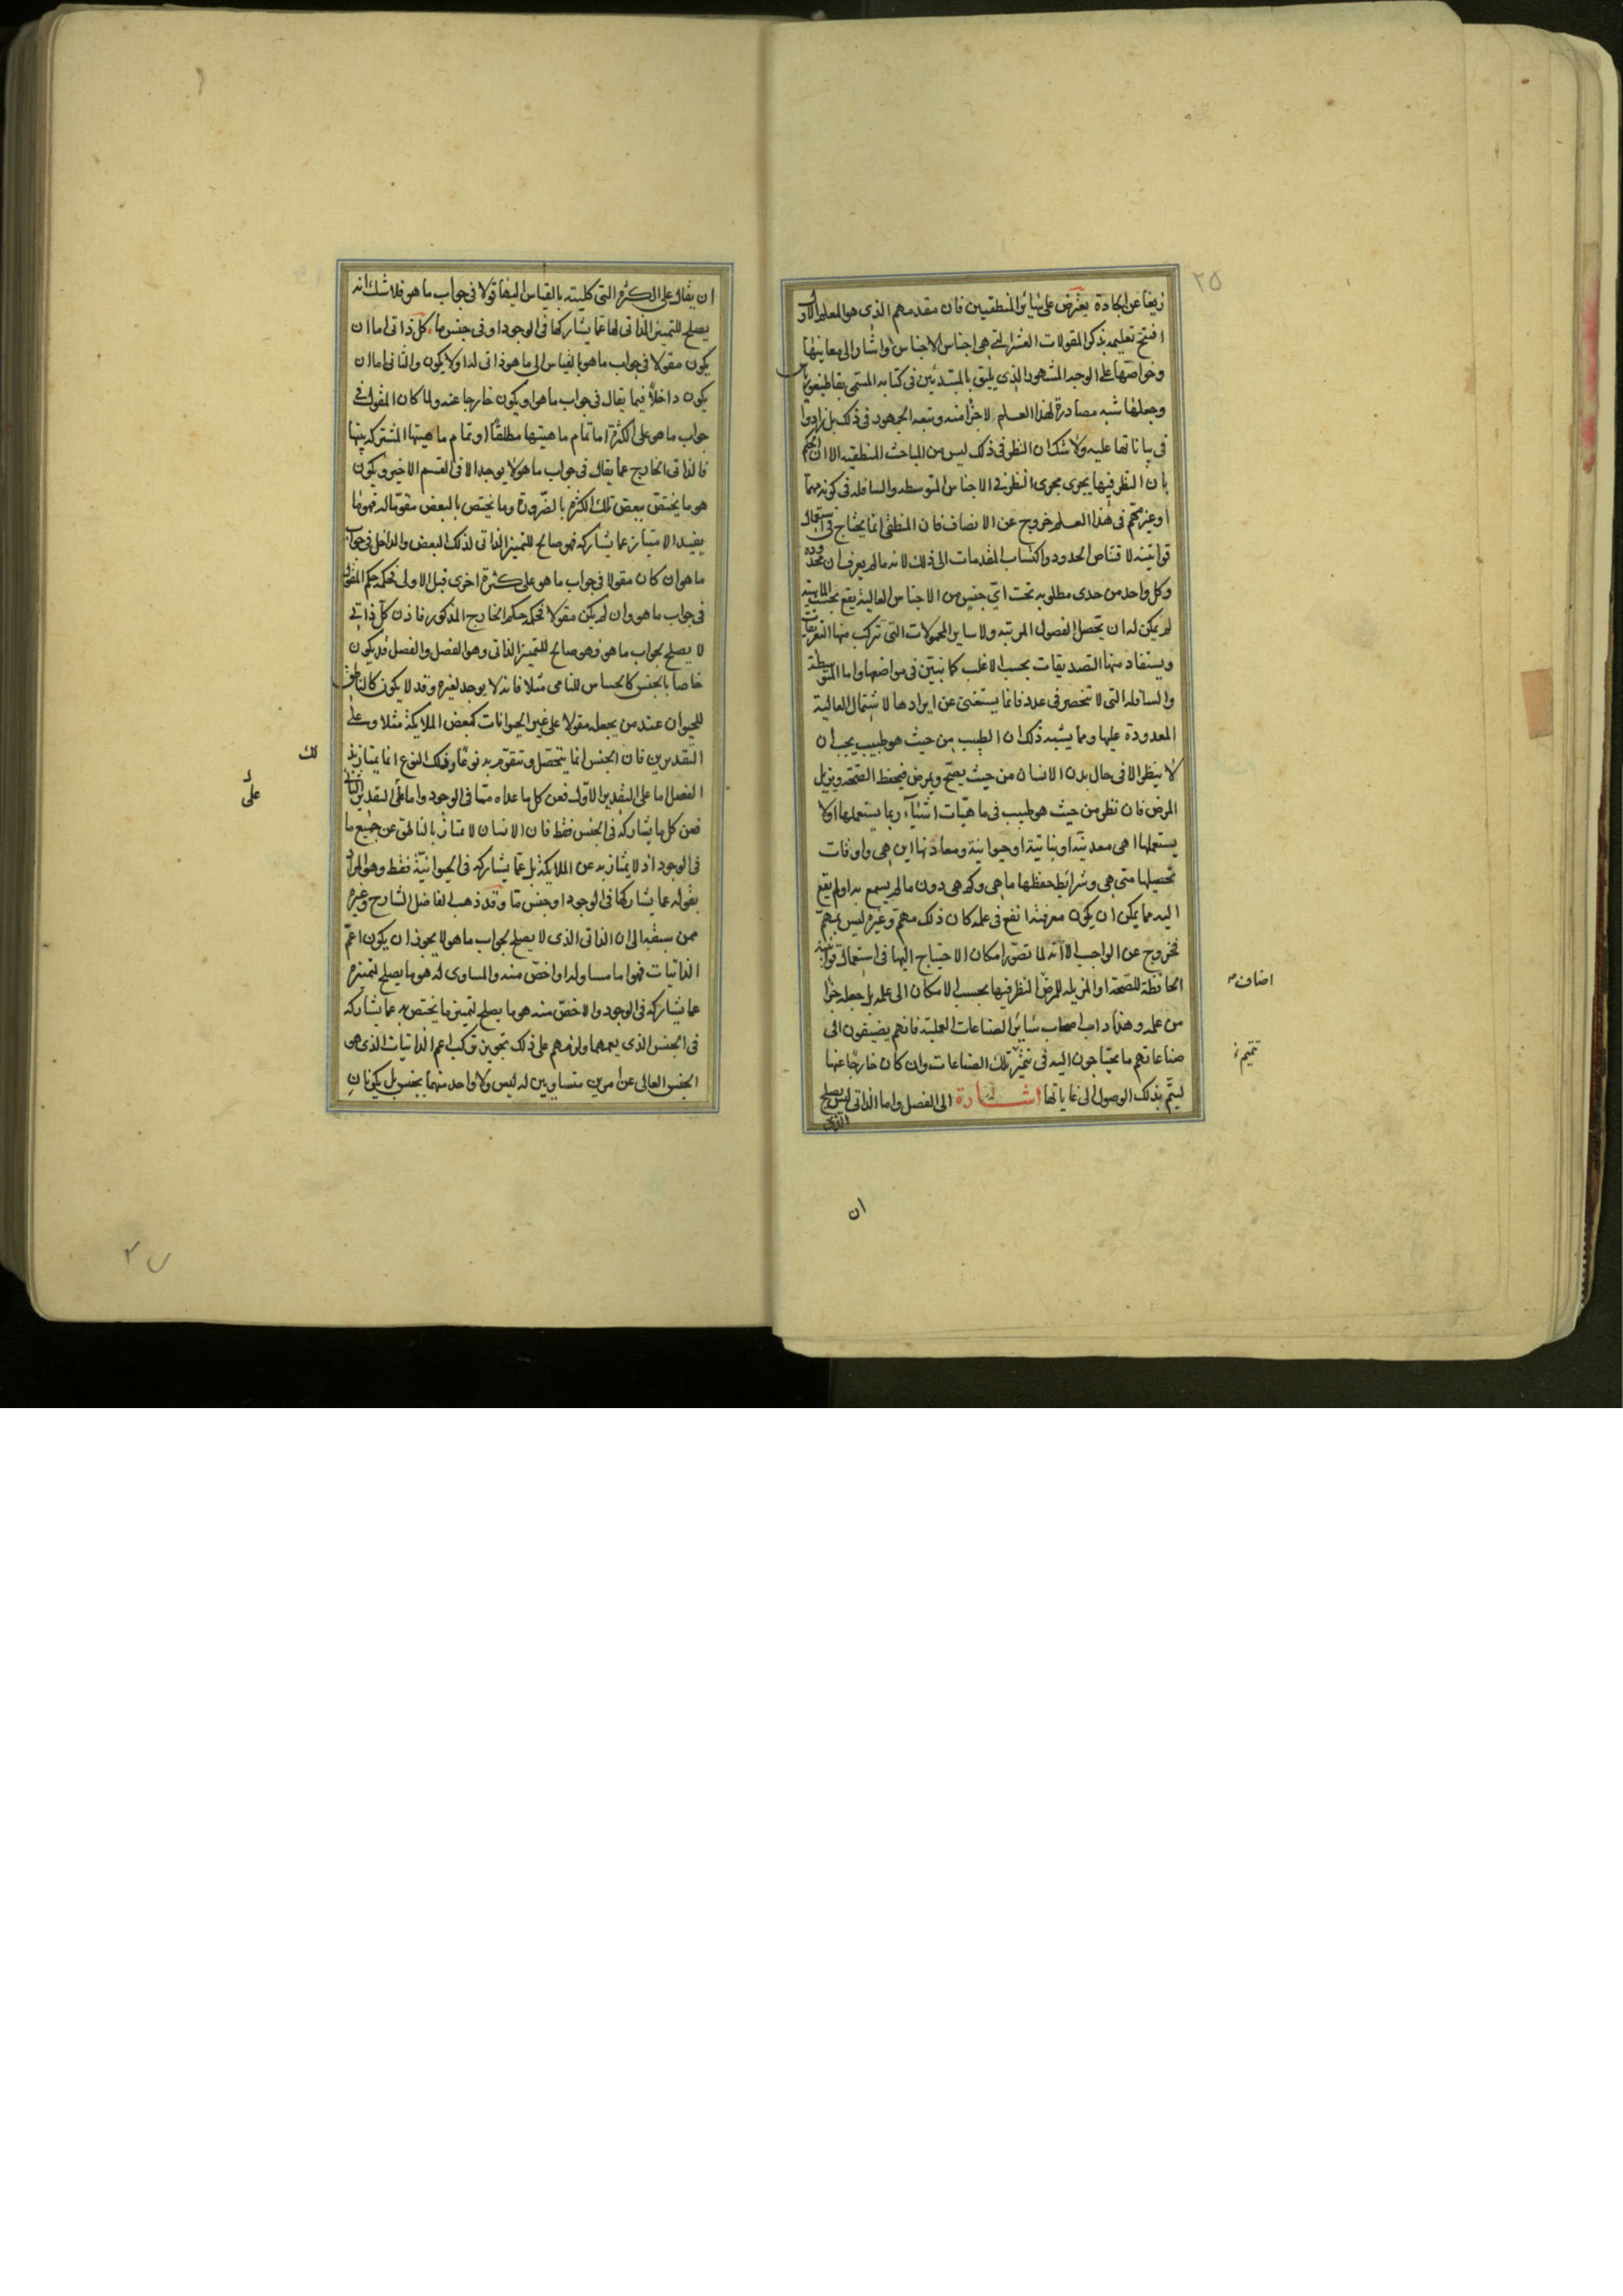 ٢٥
زيغا عن الجادة يعترض على سائر المنطقيين فان مقدمهم الذى هو المعلم الاول
افتتح تعليمه بذكر المقولات العشر التى هى اجناس الاجناس واشار الى معانيها
وخواصها على الوجه المشهور الذى يليق بالمبتدئين فى كتابه المسمى بقاطيغورياس
وجعلها شبه مصادرة لهذا العلم لا جزا منه وتبعه الجمهور فى ذلك بل زادوا
فى بياناتها عليه ولا شك ان النظر فى ذلك ليس من المباحث المنطقيه الا ان الحكم
بان النظر فيها يجرى مجرى النظر فى الاجناس المتوسطه والسافله فى كونه مهما
او غير مهم فى هذا العلم خروج عن الانصاف فان المنطقى انما يحتاج فى استعمال
قوانينه لاقتناص الحدود واكتساب المقدمات الى ذلك لانه ما لم يعرف ان محدوده
وكل واحد من حدى مطلوبه تحت اى جنس من الاجناس العالية يقع بحسب الماهية
لم يمكن له ان يحصل الفصول المرتبه ولا ساير المحمولات التى تتركب منها التعريفات
ويستفاد منها التصديقات بحسب الاغلب كما نبين فى مواضعها واما المتوسطة
والسافله التى لا تنحصر فى عدد فانما يستغنى عن ايرادها لاشتمال العالية
المعدودة عليها ومما يشبه ذلك ان الطبيب من حيث هو طبيب يجب ان
لا ينظر الا فى حال بدن الانسان من حيث يصح ويمرض فيحفظ الصحه ويزيل
المرض فان نظر من حيث هو طبيب فى ماهيات اشياء ربما يستعملها او لا
يستعملها اهى معدنية او نباتية او حيوانية ومعادنها اين هى واوقات
تحصيلها متى هى وشرائط حفظها ما هى وكم هى دون ما لم يسمع به او لم يقع
اليه مما يمكن ان يكون معرفته انفع فى علمه كان ذلك مهم وغيره ليس بمهم
فخروج عن الواجب الا انه لما تصور امكان الاحتياج اليها فى استعمال قوانينه
الحافظة للصحة او المزيله للمرض النظر فيها بحسب الامكان الى علمه بل جعله جزأ
من علمه وهذا داب اصحاب سائر الصناعات العملية فانهم يضيفون الى
صناعاتهم ما يحتاجون اليه فى تلك الصناعات وان كان خارجا عنها
ليتم بذلك الوصول الى غاياتها اشارة الى الفصل واما الذاتى الذى ليس يصلح
اضاف
تتميم
ان
ان يقال على الكثرة التى كليته بالقياس اليها قولا فى جواب ما هو فلا شك انه
يصلح للتمييز الذاتى لها عما يشاركها فى الوجود او فى جنس ما كل ذاتى اما ان
يكون مقولا فى جواب ما هو بالقياس الى ما هو ذاتى له او لا يكون والثانى اما ان
يكون داخلا فيما يقال فى جواب ما هو او يكون خارجا عنه ولما كان المقول فى
جواب ما هو على الكثرة اما تمام ماهيتها مطلقا او تمام ماهيتها المشتركه بينها
فالذاتى الخارج عما يقال فى جواب ما هو لا يوجد الا فى القسم الاخير ويكون
هو ما يختص ببعض تلك الكثره بالضرورة وما يختص بالبعض مقوما له فهو مما
يفيد الامتياز عما يشاركه فهو صالح للتمييز الذاتى لذلك البعض والداخل فى جواب
ما هو ان كان مقولا فى جواب ما هو على كثرة اخرى قبل الاولى فحكمه حكم المقول
فى جواب ما هو وان لم يكن مقولا فحكمه حكم الخارج المذكور فاذن كل ذاتى
لا يصلح لجواب ما هو فهو صالح للتمييز الذاتى وهو الفصل والفصل قد يكون
خاصا بالجنس كالحساس للنامى مثلا فانه لا يوجد لغيره وقد لا يكون كالناطق
للحيوان عند من يجعله مقولا على غير الحيوانات كبعض الملايكة مثلا وعلى
التقديرين فان الجنس انما يتحصل ويتقوم به نوعا وذلك النوع انما يمتاز بذ
الفصل اما على التقدير الاول فعن كل ما عداه مما فى الوجود واما على التقدير الثانى
فعن كل ما يشاركه فى الجنس فقط فان الانسان لا يمتاز بالناطق عن جميع ما
فى الوجود اذ لا يمتاز به عن الملايكة بل عما يشاركه فى الحيوانية فقط وهو المراد
بقوله عما يشاركها فى الوجود او جنس ما وقد ذهب الفاضل الشارح وغيره
ممن سبقه الى ان الذاتى الذى لا يصلح لجواب ما هو لا يجوز ان يكون اعم
الذاتيات فهو اما مساو له او اخص منه والمساوى له هو ما يصلح لتمييزه
عما يشاركه فى الوجود والاخص منه هو ما يصلح لتمييز ما يختص به عما يشاركه
فى الجنس الذى يعمهما ولزمهم على ذلك تجويز تركب اعم الذاتيات الذى هو
الجنس العالى عن امرين متساويين له ليس ولا واحد منهما بجنس بل يكونان
لك
على